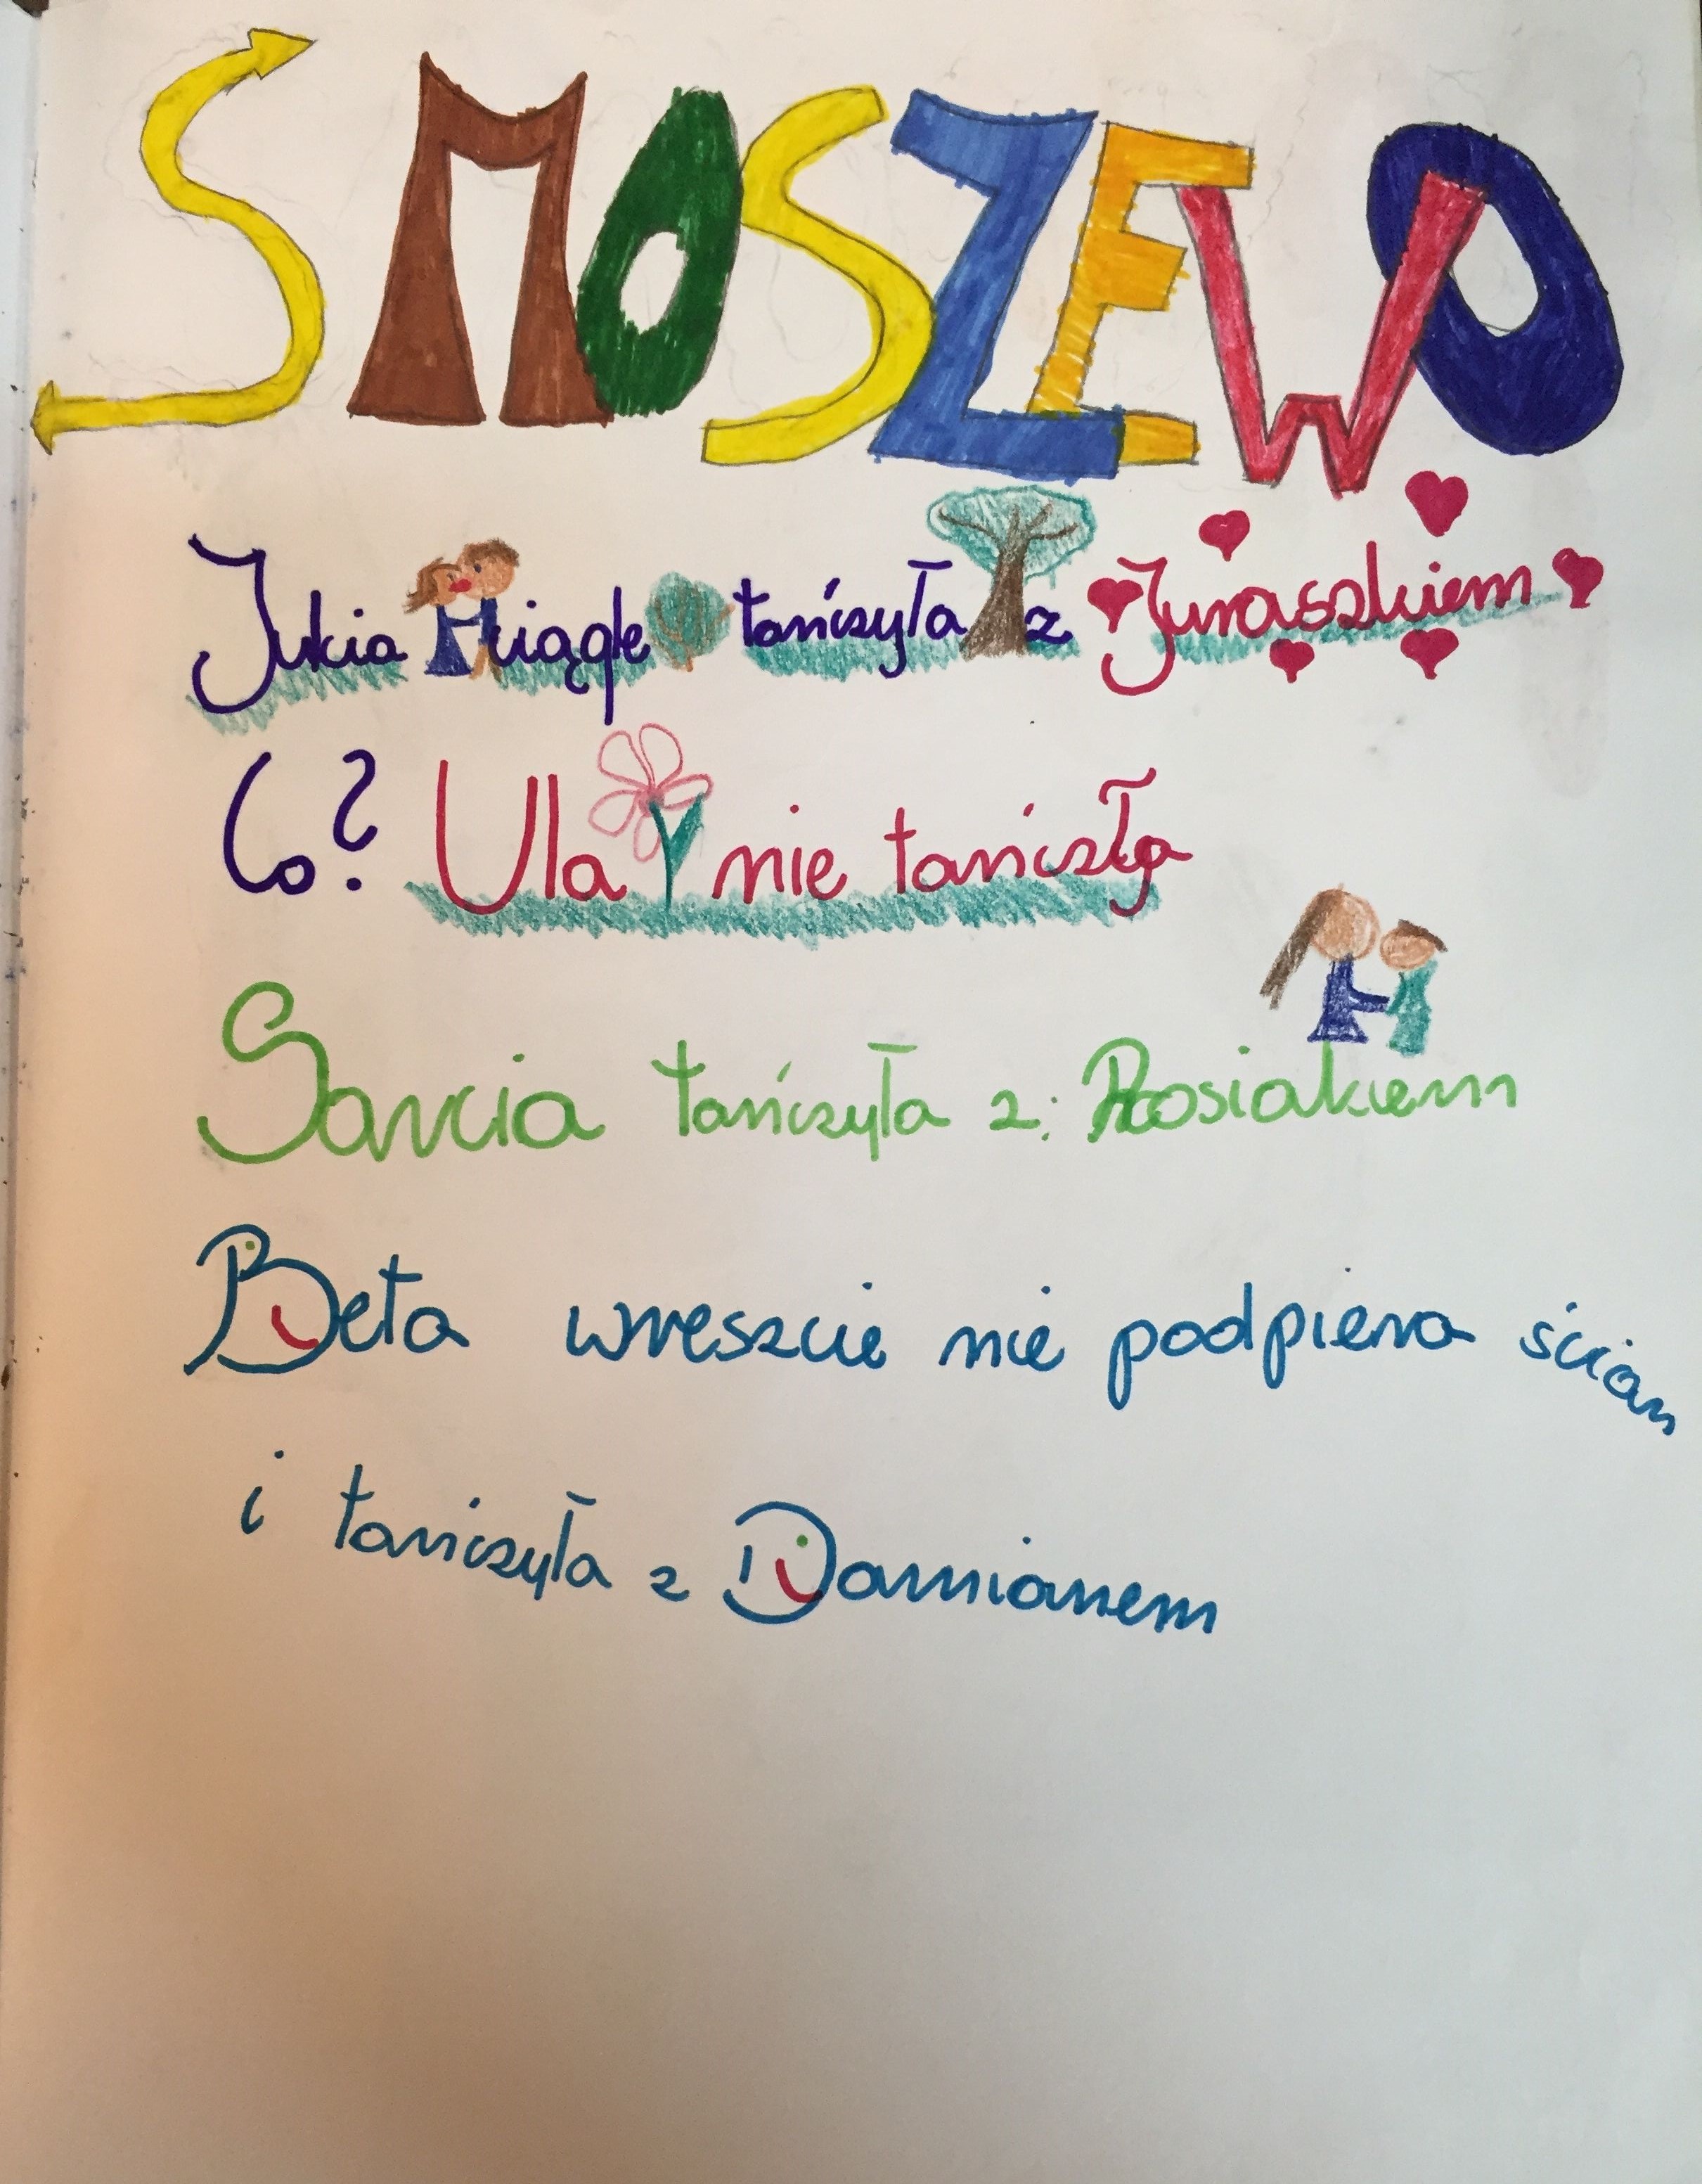 SMOSZEWO
Jukia ciągle tańczyła z Juraszkiem
Co? Ula nie tańczła
Sarcia tańczyła z: Rosiakiem
Beta wreszcie nie podpiera ścian
i tańczyła z Damianem